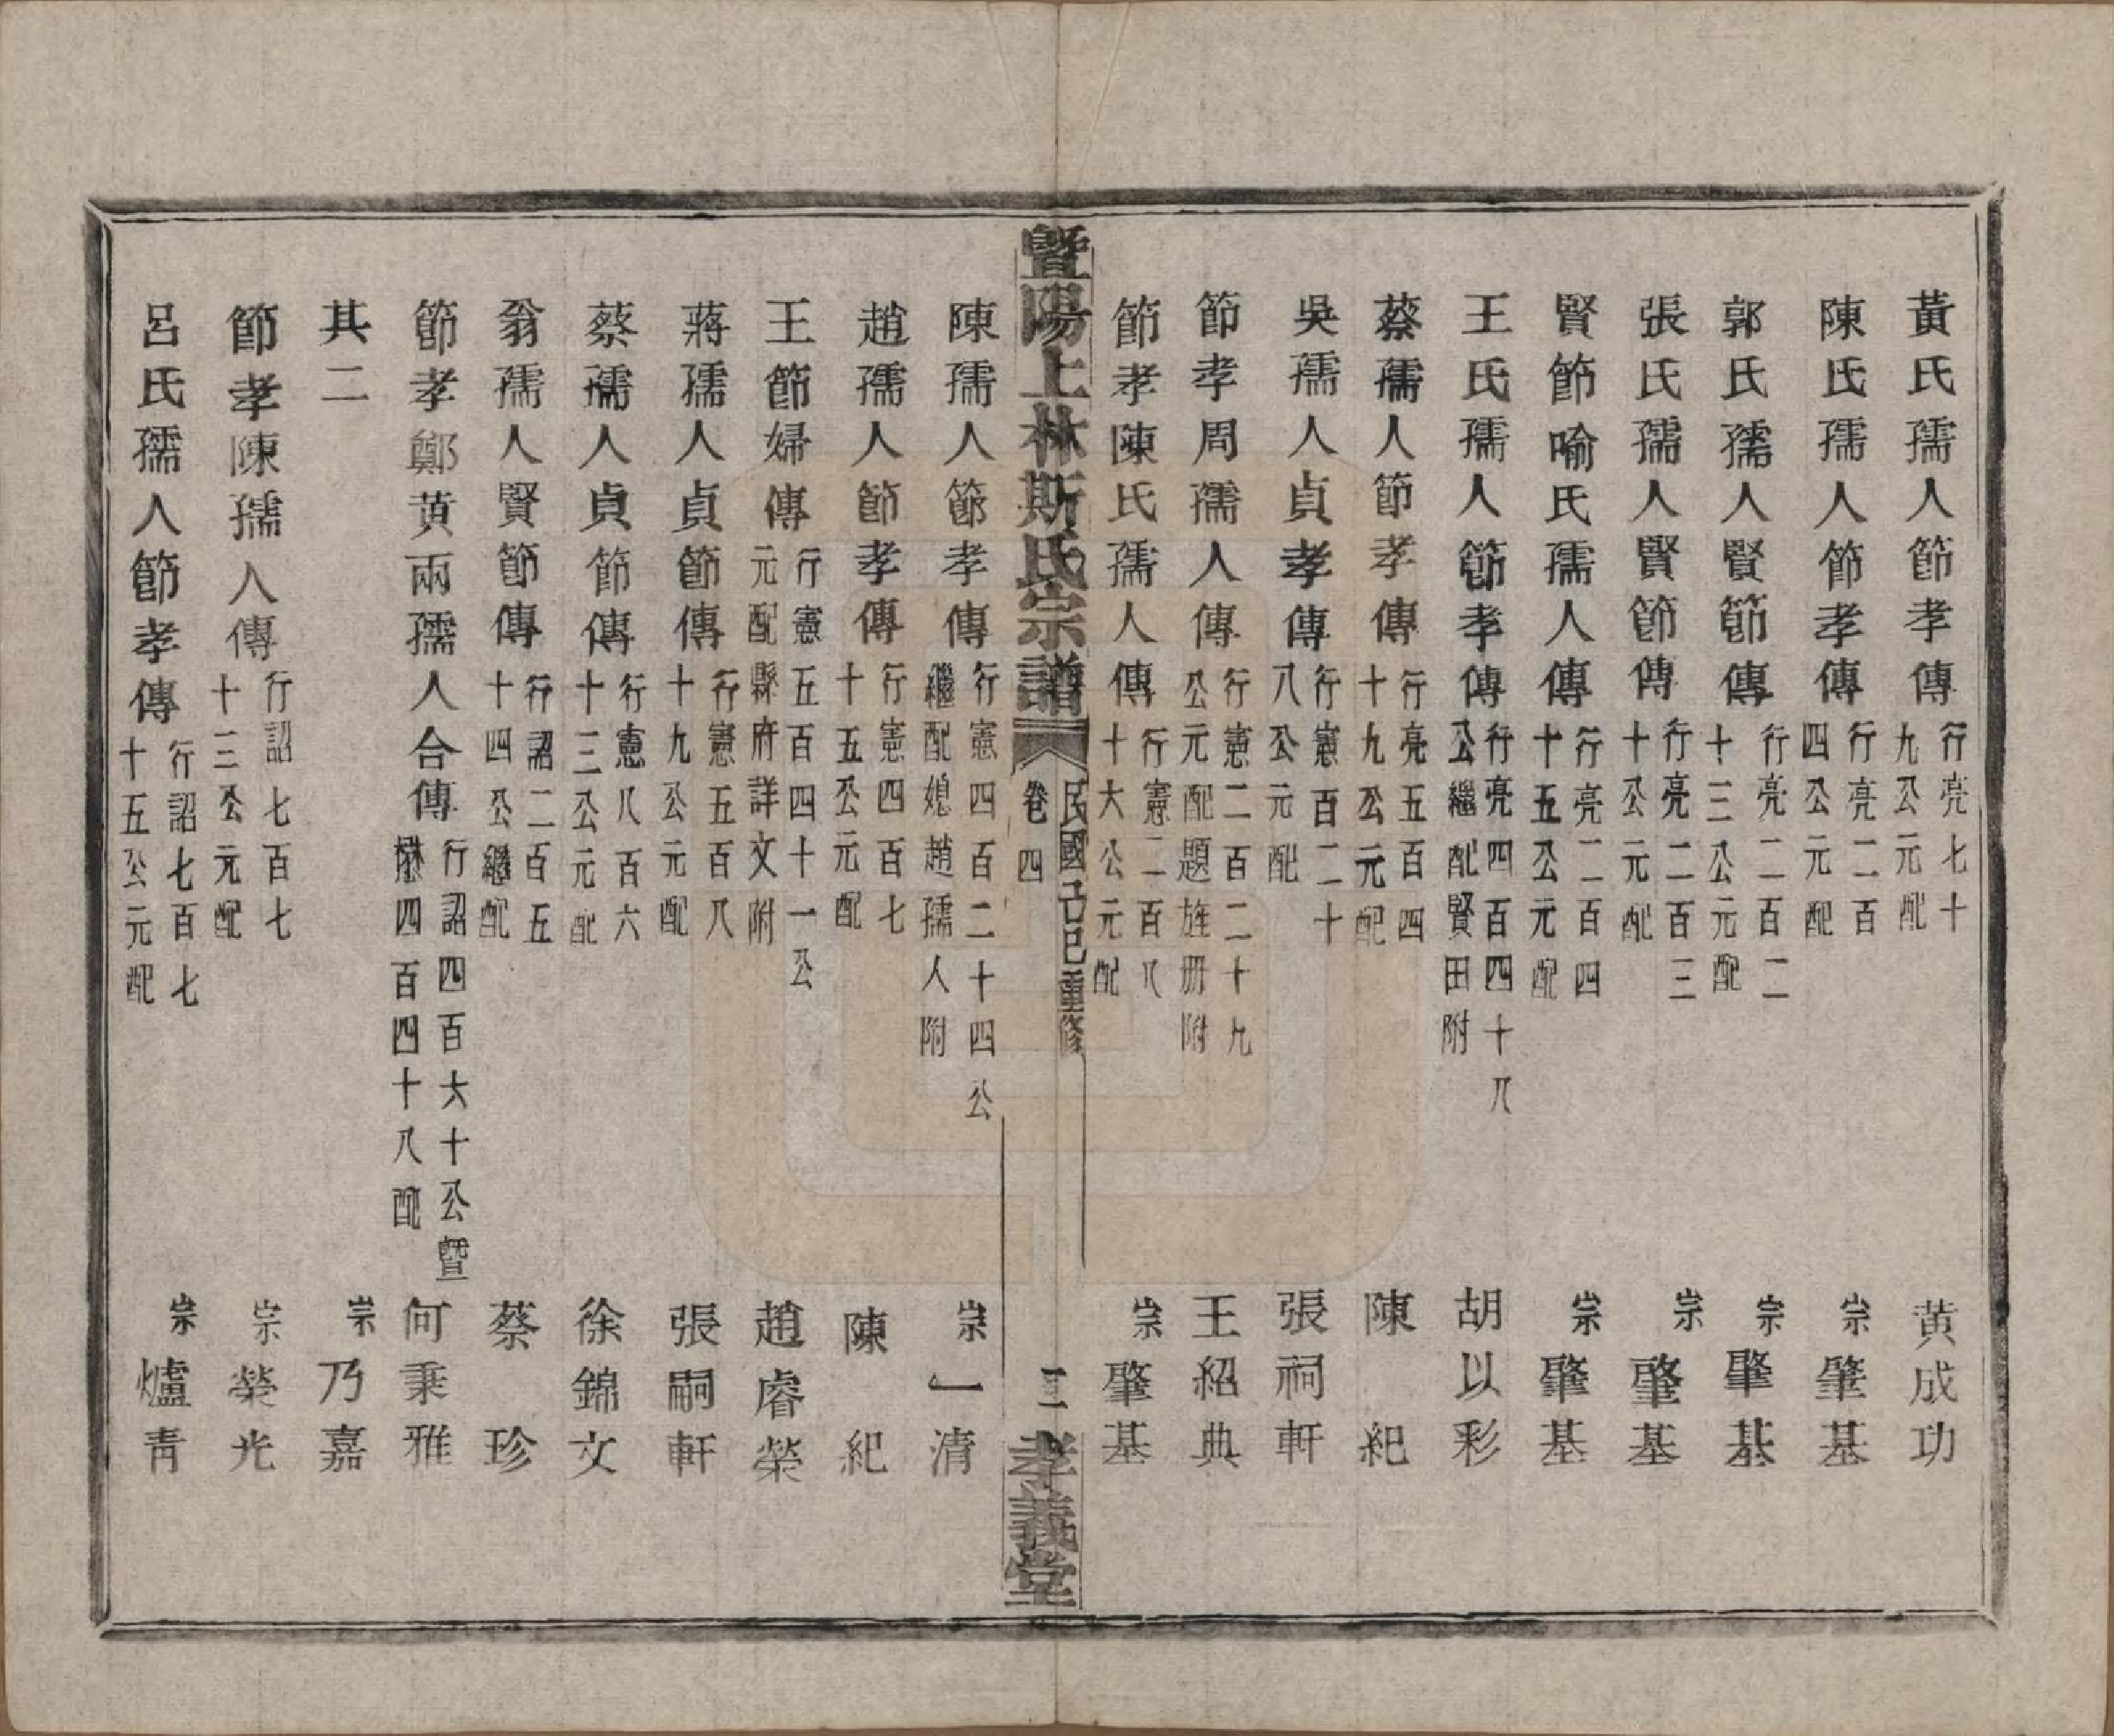 黃氏孺人節孝傳 行亮七十九公元配 黄成功
陳氏孺人節孝傳 行亮二百四公元配 宗肇基
郭氏孺人賢節傳 行亮二百二十三公元配 宗肇基
張氏孺人賢節傳 行亮二百三十公元配 宗肇基
賢節喻氏孺人傳 行亮二百四十五公元配 宗肇基
王氏孺人節孝傳 行亮四百四十八公繼配賢田附 胡以彩
蔡孺人節孝傳 行亮五百四十九公元配 陳紀
吳孺人貞孝傳 行憲百二十八公元配 張祠軒
節孝周孺人傳 行憲二百二十九公元配題旌册附 王紹典
節孝陳氏孺人傳 行憲二百八十六公元配 宗肇基
暨陽上林斯氏宗譜 卷四 民國己巳重修 三 孝義堂
陳孺人節孝傳 行憲四百二十四公繼配媳趙孺人附 宗一清
趙孺人節孝傳 行憲四百七十五公元配 陳紀
王節婦傳 行憲五百四十一公元配縣府詳文附 趙睿榮
蔣孺人貞節傳 行憲五百八十九公元配 張嗣軒
蔡孺人貞節傳 行憲八百六十三公元配 徐錦文
翁孺人賢節傳 行詔二百五十四公繼配 蔡珍
節孝鄭黃兩孺人合傳 行詔四百六十公暨楙四百四十八配 何秉雅
其二 宗乃嘉
節孝陳孺人傳 行詔七百七十三公元配 宗榮光
呂氏孺人節孝傳 行詔七百七十五公元配 宗爐青